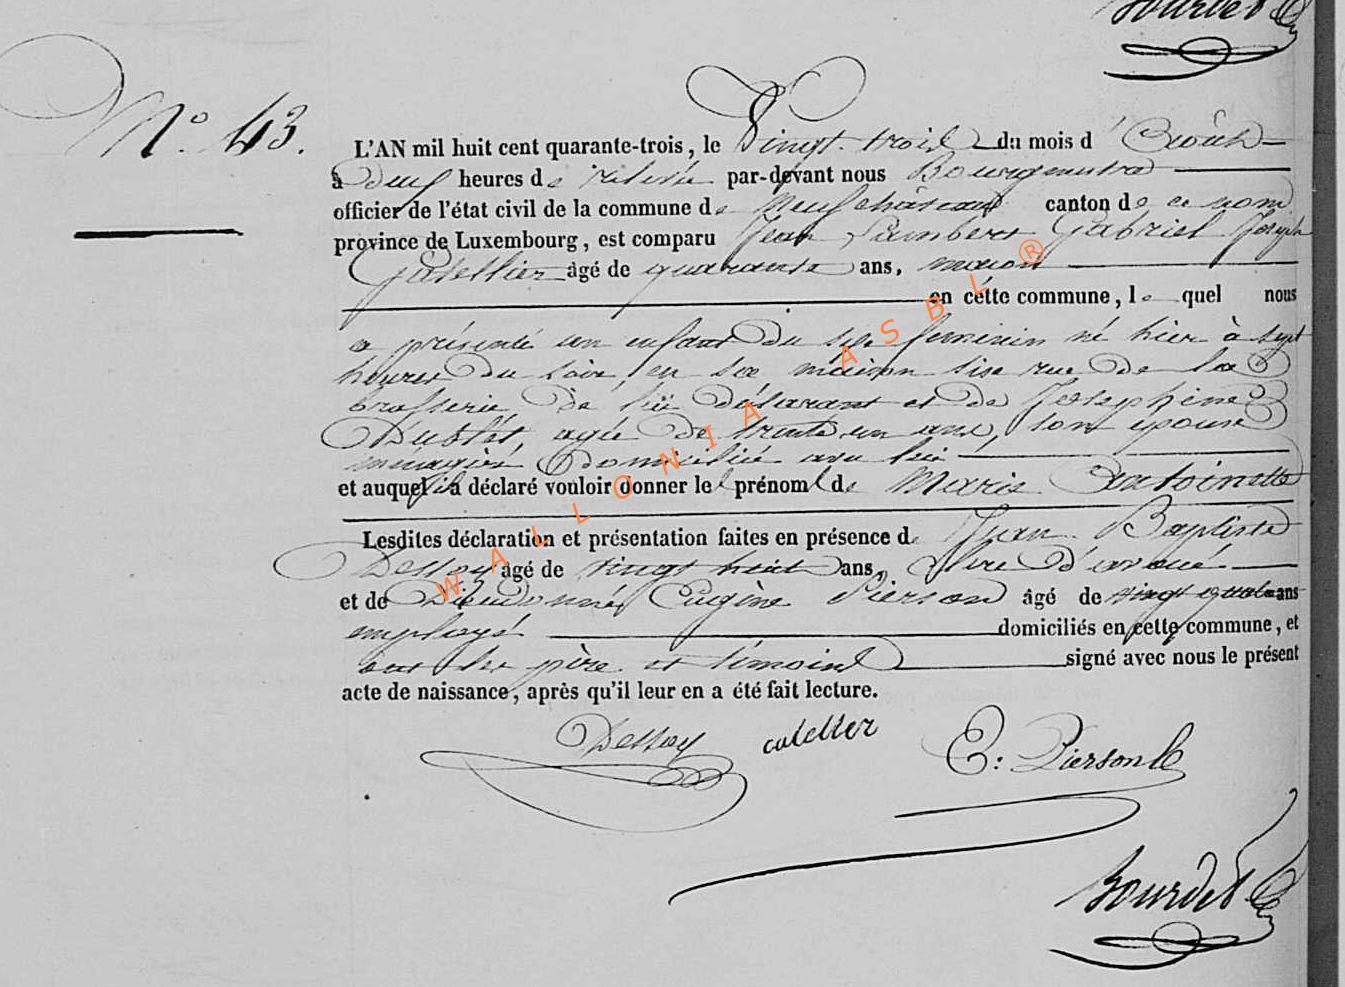 Bourdet
N° 43.
L'AN mil huit cent quarante-trois, le Vingt trois du mois d'Août
à neuf heures de relevée par-devant nous Bourgmestre
officier de l'état civil de la commune de Neufchâteau canton de ce nom
province de Luxembourg, est comparu Jean Lambert Gabriel Joseph
Catellier âgé de quarante ans, maçon
en cette commune, lequel nous
a présenté un enfant du sexe feminin né hier à sept
heures du soir, en sa maison sise rue de la
brasserie, de lui déclarant et de Josephine
agée de trente un ans, son épouse
ménagère domiciliée avec lui
et auquel il a déclaré vouloir donner le prénom de Marie Antoinette
Lesdites déclaration et présentation faites en présence de Jean Baptiste
Dessoy âgé de vingt huit ans, d'avoué
et de Dieudonné Eugène Pierson âgé de vingt quatre ans
employé domiciliés en cette commune, et
ont les père et témoins signé avec nous le présent
acte de naissance, après qu'il leur en a été fait lecture.
Dessoy cateller E: Pierson
Bourdet
WALLONIA ASBL ®